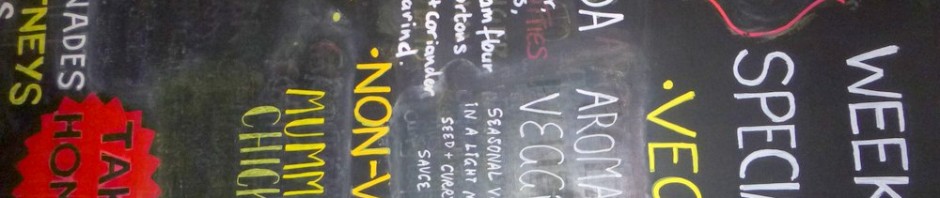 WEEK
SPECI
·VEG
DA
AROMA
VEGG
am flour
ortons
+ coriander
arind.
SEASONAL V
IN A LIGHT M
SEED + CURRY
SAUCE
·NON-V
MUMM
CHICK
NADES
TNEYS
S
TAK
HOM